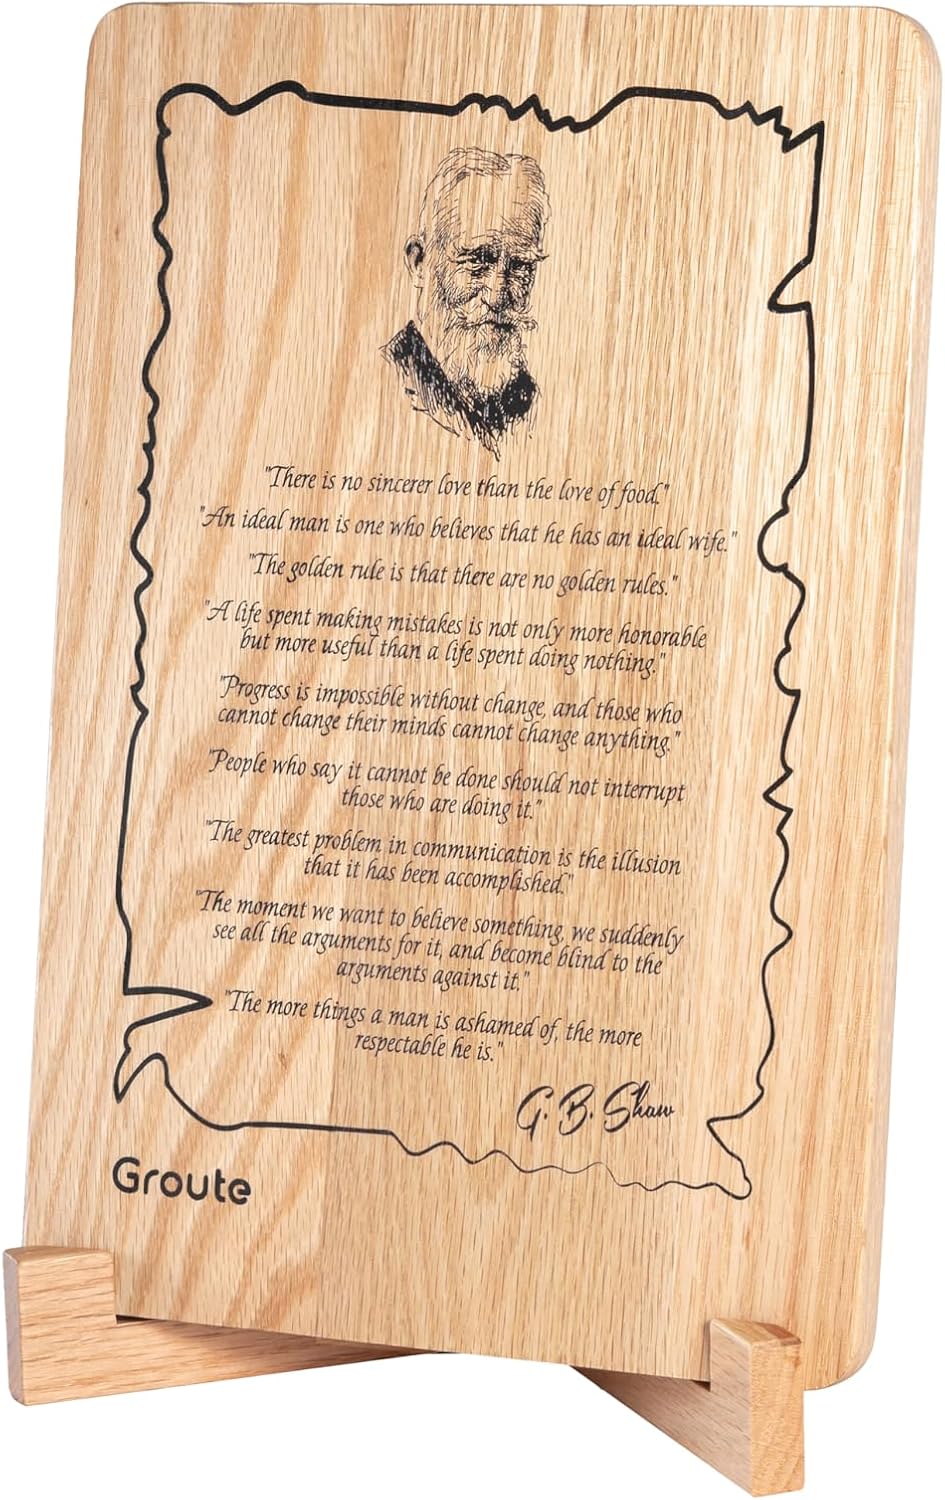 "There is no sincerer love than the love of food."
"An ideal man is one who believes that he has an ideal wife."
"The golden rule is that there are no golden rules."
"A life spent making mistakes is not only more honorable
but more useful than a life spent doing nothing."
"Progress is impossible without change, and those who
cannot change their minds cannot change anything."
"People who say it cannot be done should not interrupt
those who are doing it."
"The greatest problem in communication is the illusion
that it has been accomplished."
"The moment we want to believe something, we suddenly
see all the arguments for it, and become blind to the
arguments against it."
"The more things a man is ashamed of, the more
respectable he is."
G. B. Shaw
Groute